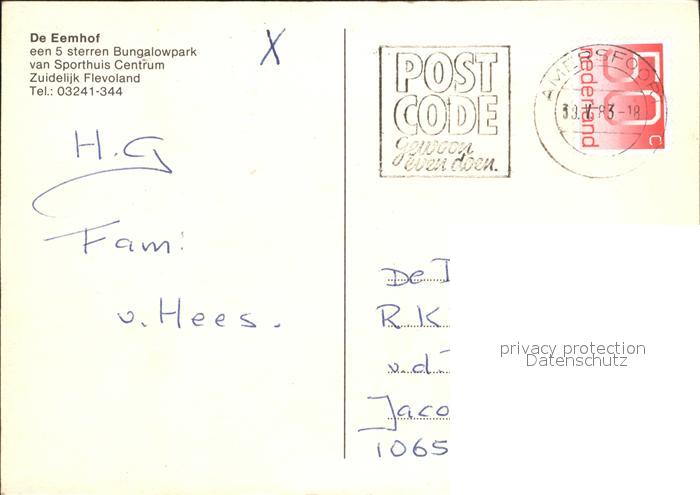 De Eemhof
een 5 sterren Bungalowpark
van Sporthuis Centrum
Zuidelijk Flevoland
Tel.: 03241-344
X
H.G
Fam:
v. Hees.
POST
CODE
gewoon
even doen.
AMERSFOOR
nederland
60 c
De
R K
v.d.
Jaco
1065
privacy protection
Datenschutz